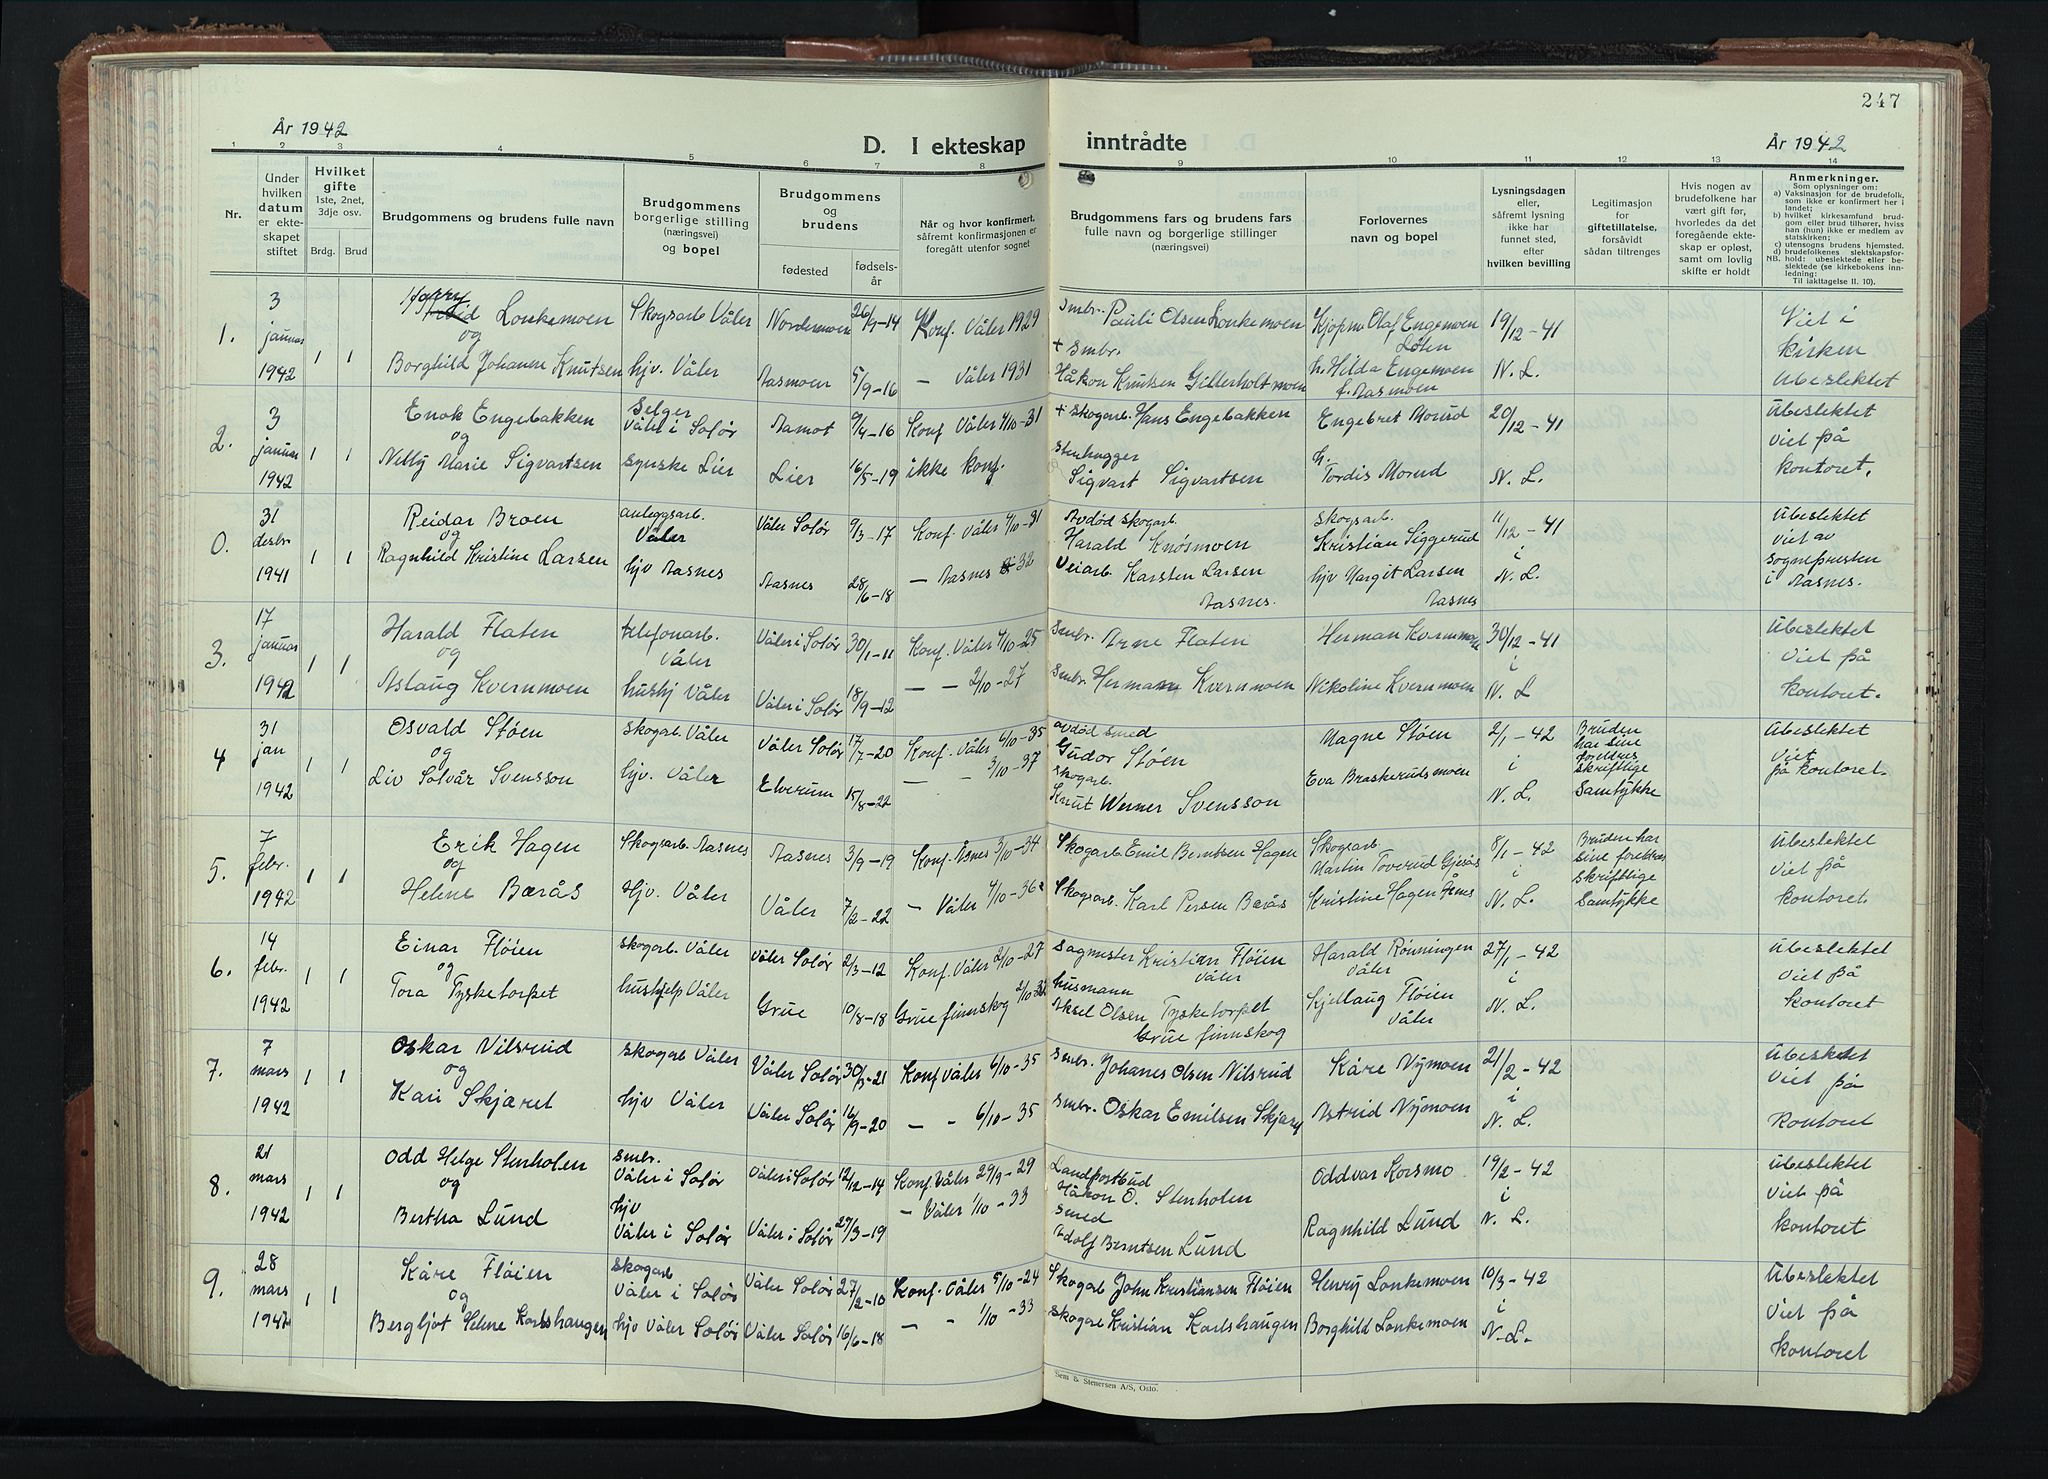 247
År 1942
D. I ekteskap inntrådte
År 1942
1 2 3 4 5 6 7 8 9 10 11 12 13 14
Nr.
Under
hvilken
datum
er ekte-
skapet
stiftet
Hvilket
gifte
1ste, 2net,
3dje osv.
Brdg. Brud
Brudgommens og brudens fulle navn
Brudgommens
borgerlige stilling
(næringsvei)
og bopel
Brudgommens
og
brudens
fødested
fødsels-
år
Når og hvor konfirmert,
såfremt konfirmasjonen er
foregått utenfor sognet
Brudgommens fars og brudens fars
fulle navn og borgerlige stillinger
(næringsvei)
Forlovernes
navn og bopel
Lysningsdagen
eller,
såfremt lysning
ikke har
funnet sted,
efter
hvilken bevilling
Legitimasjon
for
giftetillatelse,
forsåvidt
sådan tiltrenges
Hvis nogen av
brudefolkene har
vært gift før,
hvorledes da det
foregående ekte-
skap er opløst,
samt om lovlig
skifte er holdt
Anmerkninger.
Som oplysninger om:
a) Vaksinasjon for de brudefolk,
som ikke er konfirmert her i
landet;
b) hvilket kirkesamfund brud-
gom eller brud tilhører, hviss
han (hun) ikke er medlem av
statskirken;
c) utensogns brudens hjemsted.
d) brudefolkenes slektskapsfor-
NB. hold: ubeslektede eller be-
slektede (se kirkebokens inn-
ledning:
Til iakttagelse II. 10).
1.
3
januar
1942
1 1
Harry Lonkemoen
og
Borghild Johanne Knutsen
Skogsarb Våler
hjv. Våler
Nordermoen
Aasmoen
26/9-14
5/9-16
Konf. Våler 1929
— Våler 1931
Smbr. Pauli Olsen Lonkemoen
+ Smbr.
Håkon Knutsen Gillerholtmoen
Kjøpm Olaf Engemoen
Løten
h. Hilda Engemoen
f. Aasmoen
19/12-41
N. L.
Viet i
kirken
Ubeslektet
2.
3
januar
1942
1 1
Enok Engebakken
og
Nelly Marie Sigvartsen
Selger
Våler i Solør
syerske Lier
Aamot
Lier
9/4-16
16/5-19
Konf Våler 4/10-31
ikke konf.
+ skogarb. Hans Engebakken
Stenhugger
Sigvart Sigvartsen
Engebret Morud
h.
Tordis Morud
20/12-41
N. L.
Ubeslektet
Viet på
kontoret.
0.
31
desbr
1941
1 1
Reidar Broen
og
Ragnhild Kristine Larsen
anleggsarb.
Våler
hjv Aasnes
Våler Solør
Aasnes
9/3-17
28/6-18
Konf. Våler 4/10-31
— Aasnes 32
Avdød skogarb.
Harald Knøsmoen
Veiarb. Karsten Larsen
Aasnes.
Skogsarb.
Kristian Siggerud
hjv Margit Larsen
Aasnes
11/12-41
i
N. L.
Ubeslektet
viet av
sognepresten
i Aasnes.
3.
17
januar
1942
1 1
Harald Flaten
og
Aslaug Kvernmoen
telefonarb.
Våler
hushj Våler
Våler i Solør
Våler i Solør
30/1-11
18/9-12
Konf. Våler 4/10-25
— — 2/10-27
Smbr. Arne Flaten
Smbr. Herman Kvernmoen
Herman Kvernmoen
Nikoline Kvernmoen
30/12-41
i
N. L
Ubeslektet
Viet på
kontoret.
4
31
jan
1942
1 1
Osvald Støen
og
Liv Solvår Svensson
skogarb. Våler
hjv. Våler
Våler Solør
Elverum
17/7-20
15/8-22
Konf. Våler 6/10-35
— — 3/10-37
avdød smed
Gudor Støen
skogarb.
Knut Werner Svensson
Magne Støen
Eva Braskerudsmoen
2/1-42
i
N. L.
Bruden
har sine
foreldres
skriftlige
Samtykke
Ubeslektet
Viet
på kontoret.
5.
7
febr.
1942
1 1
Erik Hagen
og
Helene Bærås
Skogsarb Aasnes
Hjv. Våler
Aasnes
Våler
3/9-19
7/2-22
Konf. Åsnes 3/10-34
— Våler 4/10-36
Skogarb Emil Berntsen Hagen
Skogsarb. Karl Persen Bærås
Skogsarb.
Martin Toverud Gjesås
Kristine Hagen Åsnes
8/1-42
i
N. L.
Bruden har
sine foreldres
skriftlige
Samtykke
Ubeslektet
Viet på
kontoret.
6.
14
febr.
1942
1 1
Einar Fløien
og
Tora Tysketorpet
skogarb. Våler
hushjelp Våler
Våler Solør
Grue
2/3-12
10/8-18
Konf. Våler 2/10-27
Grue finnskog 2/10-32
Sagmester Kristian Fløien
Våler
husmann
Aksel Olsen Tysketorpet
Grue finnskog
Harald Rønningen
Våler
Kjellaug Fløien
Våler
27/1-42
i
N. L.
Ubeslektet
Viet på
kontoret
7.
7
mars
1942
1 1
Oskar Nilsrud
og
Kari Skjæret
skogarb Våler
hjv Våler
Våler Solør
Våler Solør
30/3-21
16/9-20
Konf Våler 6/10-35
— — 6/10-35
Smbr. Johanes Olsen Nilsrud
Smbr. Oskar Emilsen Skjæret
Kåre Nymoen
Astrid Nymoen
21/2-42
i
N. L.
Ubeslektet
Viet på
kontoret
8.
21
mars
1942
1 1
Odd Helge Stenholen
og
Bertha Lund
smbr.
Våler i Solør
hjv
Våler i Solør
Våler i Solør
Våler i Solør
12/12-14
27/3-19
Konf. Våler 29/9-29
— Våler 1/10-33
Landpostbud
Håkon O. Stenholen
Smed
Adolf Berntsen Lund
Oddvar Korsmo
Ragnhild Lund
19/2-42
i
N. L.
Ubeslektet
Viet på
kontoret
9.
28
mars
1942
1 1
Kåre Fløien
og
Bergljot Helene Karlshaugen
skogarb
Våler i Solør
hjv Våler Solør
Våler Solør
Våler Solør
27/2-10
16/6-18
Konf. Våler 5/10-24
— — 1/10-33
Skogarb John Kristiansen Fløien
skogarb Kristian Karlshaugen
Henry Lonkemoen
Borghild Lonkemoen
10/3-42
i
N. L.
Ubeslektet
Viet på
kontoret
Sem & Stenersen A/S, Oslo.